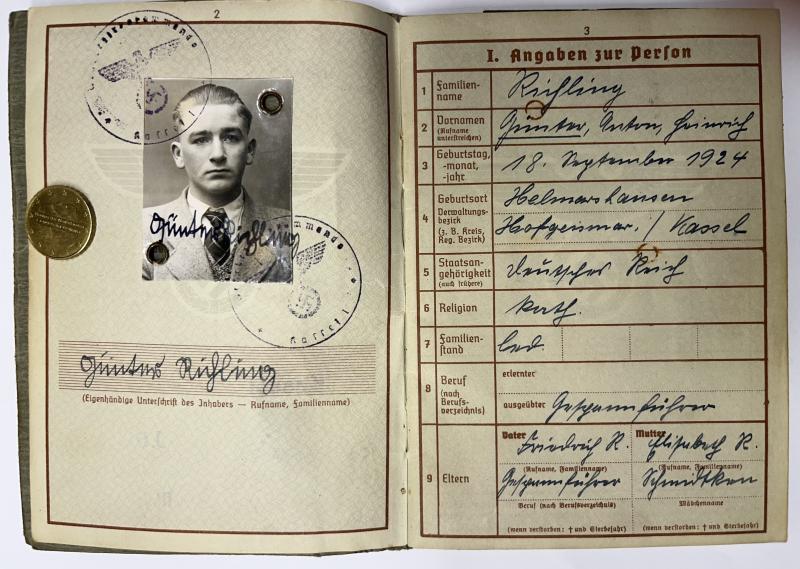 2
Günter Richling
Günter Richling
(Eigenhändige Unterschrift des Inhabers — Rufname, Familienname)
3
I. Angaben zur Person
1 Familien-
name
Richling
2 Vornamen
(Rufname
unterstreichen)
Günter, Anton, Heinrich
3 Geburtstag,
-monat,
-jahr
18. September 1924
4 Geburtsort
Verwaltungs-
bezirk
(z. B. Kreis,
Reg. Bezirk)
Helmarshausen
Hofgeismar / Kassel
5 Staatsan-
gehörigkeit
(auch frühere)
Deutsches Reich
6 Religion
kath.
7 Familien-
stand
led.
8 Beruf
(nach
Berufs-
verzeichnis)
erlernter
ausgeübter Gespannführer
9 Eltern
Vater Friedrich R.
(Rufname, Familienname)
Gespannführer
Beruf (nach Berufsverzeichnis)
(wenn verstorben: † und Sterbejahr)
Mutter Elisabeth R.
(Rufname, Familienname)
Mädchenname
(wenn verstorben: † und Sterbejahr)